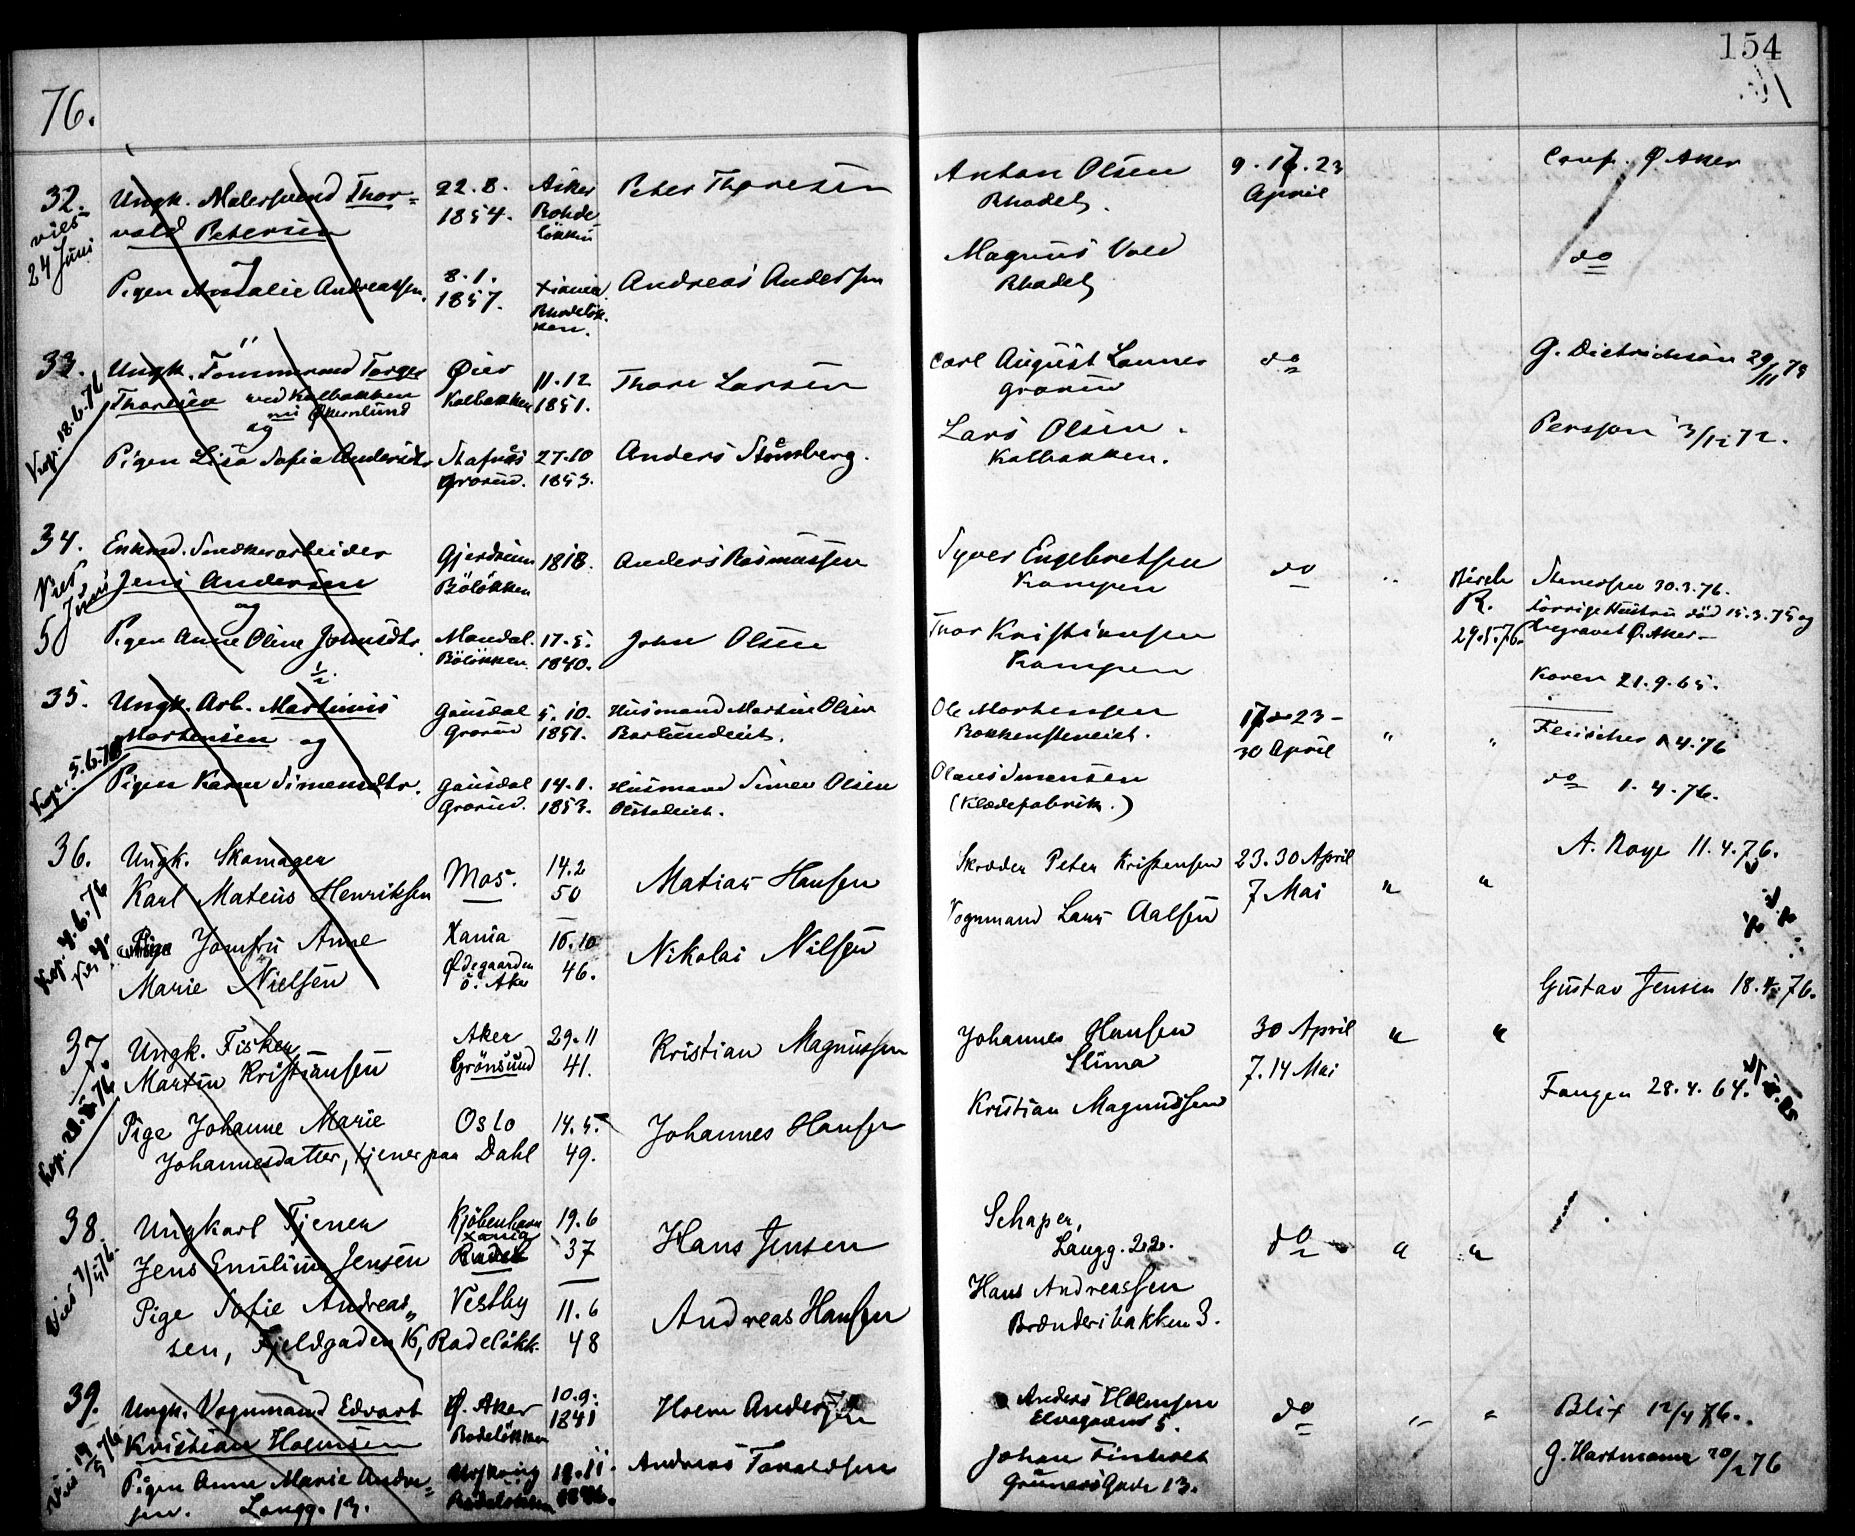 154
76.
32. Ungk. Malersvend Thor-
vald Petersen
viet 24 Juni
22.8. 1854.
Aker Rohdeløkken
Peter Thoresen
Anton Olsen
Rhodel.
9. 16. 23 April
Conf. Ø. Aker
og
Pigen Amalie Andreassen.
8.1. 1857.
Xiania. Rhodeløkken.
Andreas Andersen
Magnus Vold
Rhodel.
do
33. Ungk. Tømmermand Torger
Thoresen ved Kalbakken
Kop. 18.6.76
Øier Kalbakken
11.12 1851.
Thore Larsen
Carl August Lannes
Grorud
do
G. Dietrichson 29/11 75
og
Pigen Lisa Sofia Andersdtr
Stafnäs Grorud.
27.10 1853.
Anders Stõmberg.
Lars Olsen.
Kalbakken.
Persson 3/12 72.
34. Enkmd. Snedkerarbeider
Jens Andersen
Viet 5 Juni
Gjerdrum Böløkken
1818.
Anders Rasmussen
Syver Engebretsen
Kampen
do
"
Birch R. 29.5.76.
Stenersen 30.3.76.
forrige Hustru død 15.3.75 og
begravet Ø. Aker -
og
Pigen Anne Oline Johnsdtr.
Mandal. Böløkken
17.5. 1840.
John Olsen
Thor Kristiansen
Kampen
Koren 21.9.65.
35. Ungk. Arb. Martinius
Mortensen og
Kop. 5.6.76
Gausdal Grorud
5.10. 1851.
Husmand Martin Olsen
Ole Mortensen
17. 23 - 30 April
" "
4.76
Pigen Karen Simensdtr.
Gausdal Grorud.
14.1. 1853.
Husmand Simen Olsen
Olaus Simensen
(Klædefabrik.)
do 1.4.76.
36. Ungk. Skomager
Karl Mateus Henriksen
Kop. 4.6.76
Mos.
14.2 50
Matias Hansen
Skræder Peter Kristensen
23. 30 April
7 Mai
" "
A. Roye 11.4.76.
Jomfru Anne
Marie Nielsen
Xania
Ødegaarden ö. Aker
46.
Nikolai Nilsen
Vognmand Lars Aalsen
Gustav Jensen 18.4.76.
37. Ungk. Fisker
Martin Kristiansen
Aker
Grönsund
29.11 41.
Kristian Magnussen
Johannes Hansen
Slima
30 April
7. 14 Mai
" "
Pige Johanne Marie
Johannesdatter, tjener paa Dahl
Oslo
14.5. 49.
Johannes Hansen
Kristian Magnussen
Fangen 28.4.64.
38. Ungkarl Tjener
Jens Emilius Jensen
Kjöbenhavn
Xania
19.6 37
Hans Jensen
Schaper,
Langg. 22.
do
" "
Pige Sofie Andreas-
sen, Fjeldgaden 16, Radeløkk.
Vestby
11.6 48
Andreas Hansen
Hans Andreassen
Brænderibakken 3.
39. Ungk. Vognmand Edvart
Kristian Holmsen
Ø. Aker
Rodeløkken
10.9. 1841
Holm Andersen
Anders Holmsen
Elvegaden 5.
do
" "
Blix 12/4 76.
Pigen Anne Marie Andre-
sen. Langg. 13.
Rodeløkken
19.11.
Andreas Toraldsen
Johan Finholt
Grüners Gade 13.
G. Hartmann 20/2 76